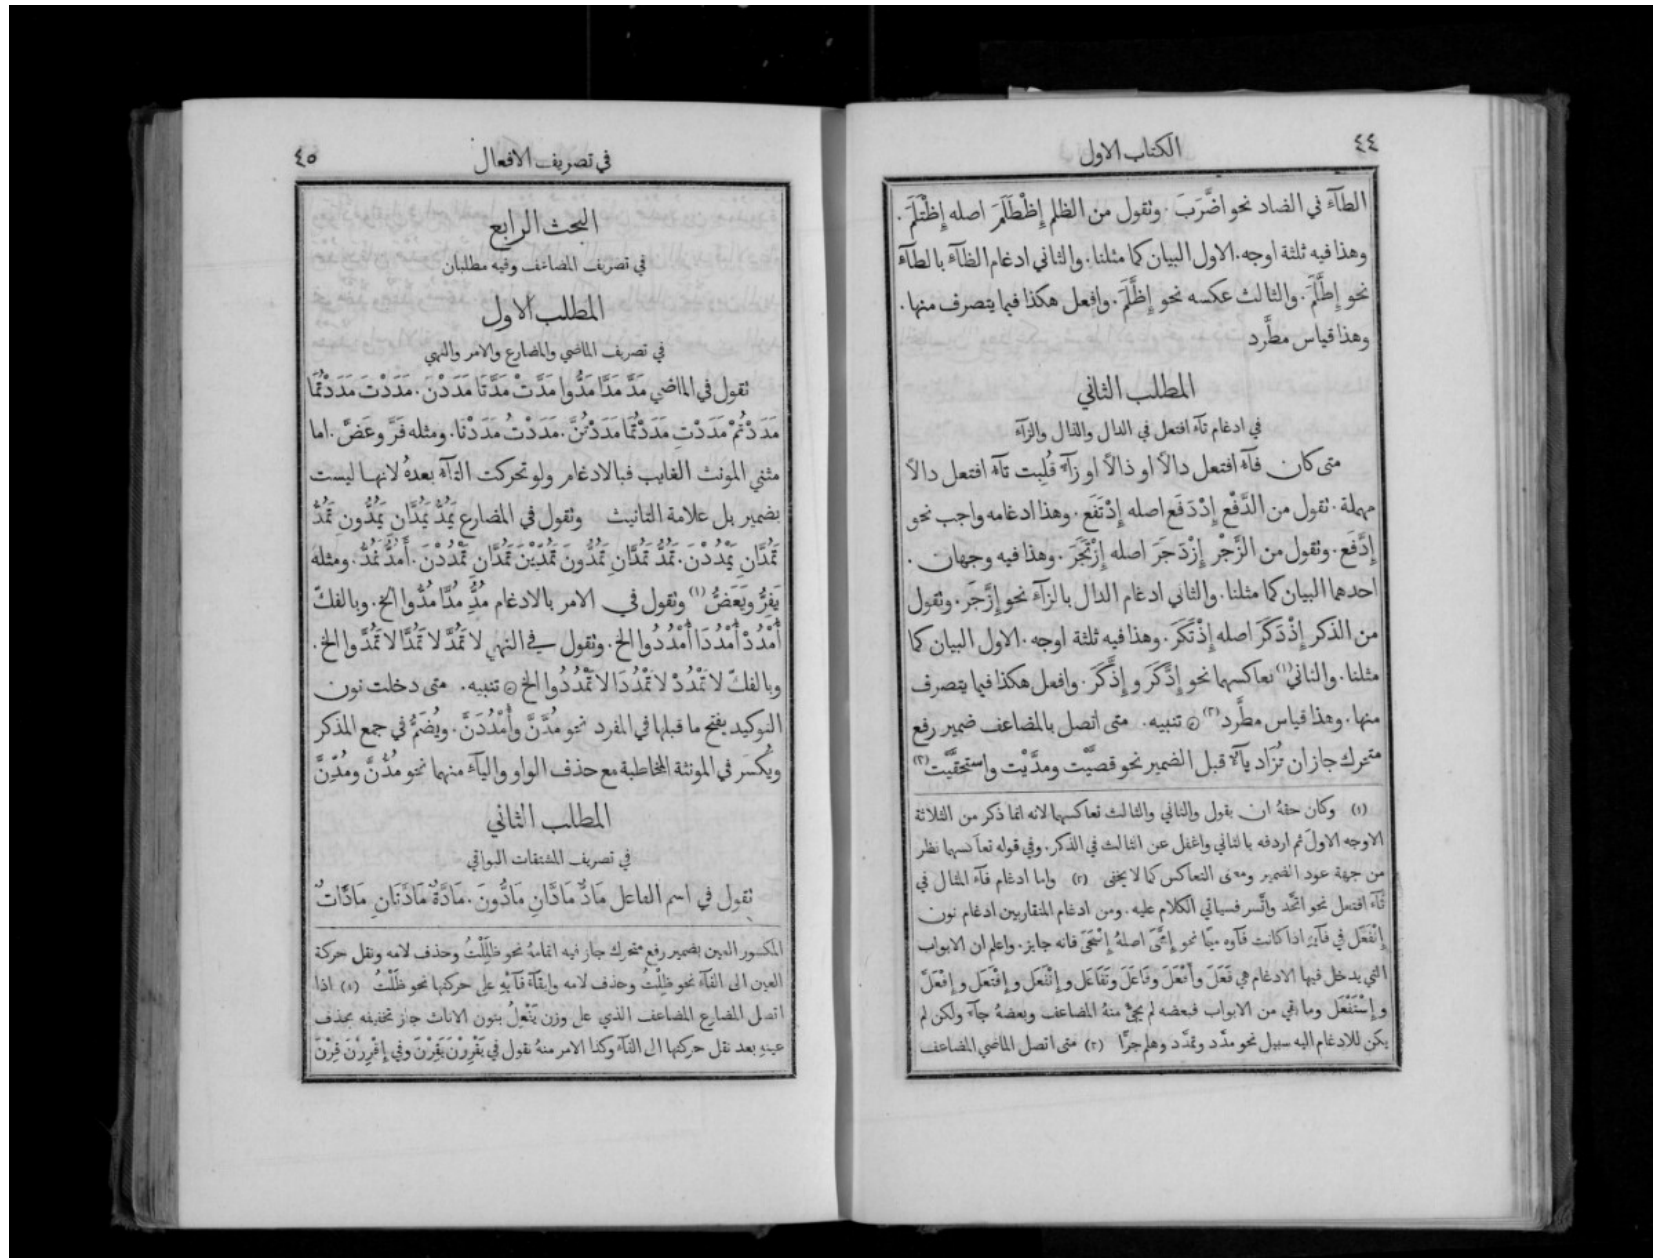 ٤٤
الكتاب الاول
الطآء في الضاد نحو اضَّرَبَ . ونقول من الظلم إِظْطَلَمَ اصله إِظْتَلَمَ .
وهذا فيه ثلثة اوجه . الاول البيان كما مثلنا . والثاني ادغام الظآء بالطآء
نحو إِطَّلَمَ . والثالث عكسه نحو إِظَّلَمَ . وافعل هكذا فيما يتصرف منها .
وهذا قياس مطَّرد
المطلب الثاني
في ادغام تآء افتعل في الدال والذال والزآء
متى كان فآء افتعل دالًا او ذالًا او زآء قُلِبت تآء افتعل دالًا
مهملة . نقول من الدَّفْع إِدْدَفَع اصله إِدْتَفَع . وهذا ادغامه واجب نحو
إِدَّفَع . ونقول من الزَّجْر إِزْدَجَرَ اصله إِزْتَجَرَ . وهذا فيه وجهان .
احدهما البيان كما مثلنا . والثاني ادغام الدال بالزآء نحو إِزَّجَر . ونقول
من الذكر إِذْدَكَرَ اصله إِذْتَكَرَ . وهذا فيه ثلثة اوجه . الاول البيان كما
مثلنا . والثاني (١) تعاكسهما نحو إِدَّكَرَ و إِذَّكَرَ . وافعل هكذا فيما يتصرف
منها . وهذا قياس مطَّرد (٢) ۞ تنبيه . متى اتصل بالمضاعف ضمير رفع
متحرك جاز ان تُزَاد يآءٌ قبل الضمير نحو قصيَّت ومدَّيْت واستحقيَّت (٣)
(١) وكان حقهُ ان يقول والثاني والثالث تعاكسهما لانه انما ذكر من الثلاثة
الاوجه الاول ثم اردفه بالثاني واغفل عن الثالث في الذكر . وفي قوله تعاكسهما نظر
من جهة عود الضمير ومعنى التعاكس كما لا يخفى (٢) واما ادغام فآء المثال في
تآء افتعل نحو اتَّحد واتَّسر فسياتي الكلام عليه . ومن ادغام المتقاربين ادغام نون
إِنْفَعَل في فآئهِ اذا كانت فآوه ميمًا نحو إِمَّحَى اصلهُ إِنْمَحَى فانه جايز . واعلم ان الابواب
التي يدخل فيها الادغام هي فَعَلَ و أَفْعَلَ وفَاعَلَ وتَفَاعَل و إِنْفَعَل و إِفْتَعَل و إِفْعَلَّ
و إِسْتَفْعَل وما بقي من الابواب فبعضه لم يجئ منهُ المضاعف وبعضهُ جآء ولكن لم
يكن للادغام اليه سبيل نحو مدَّد وتمدَّد وهلم جرًّا (٣) متى اتصل الماضي المضاعف
في تصريف الافعال
٤٥
البحث الرابع
في تصريف المضاعف وفيه مطلبان
المطلب الاول
في تصريف الماضي والمضارع والامر والنهي
نقول في الماضي مَدَّ مَدَّا مَدُّوا مَدَّتْ مَدَّتَا مَدَدْنَ . مَدَدْتَ مَدَدْتُمَا
مَدَدْتُمْ مَدَدْتِ مَدَدْتُمَا مَدَدْتُنَّ . مَدَدْتُ مَدَدْنَا . ومثله فَرَّ وعَضَّ . اما
مثني المونث الغايب فبالادغام ولو تحركت التآء بعدهُ لانها ليست
بضمير بل علامة التانيث ونقول في المضارع يَمُدُّ يَمُدَّان يَمُدُّونِ تَمُدُّ
تَمُدَّانِ يَمْدُدْنَ . تَمُدُّ تَمُدَّانِ تَمُدُّونَ تَمُدِّيْنَ تَمُدَّانِ تَمْدُدْنَ . أَمُدُّ نَمُدُّ . ومثله
يَفِرُّ ويَعَضُّ (١) ونقول في الامر بالادغام مُدُّ مُدَّا مُدُّوا الخ . وبالفكّ
أُمْدُدْ أُمْدُدَا أُمْدُدُوا الخ . ونقول في النهي لا تَمُدَّ لا تَمُدَّا لا تَمُدُّوا الخ .
وبالفكّ لا تَمْدُدْ لا تَمْدُدَا لا تَمْدُدُوا الخ ۞ تنبيه . متى دخلت نون
التوكيد يفتح ما قبلها في المفرد نحو مُدَّنَّ وأُمْدُدَنَّ . ويُضَمُّ في جمع المذكر
ويُكْسَر في المونثة المخاطبة مع حذف الواو والياء منهما نحو مُدُّنَّ ومُدِّنَّ
المطلب الثاني
في تصريف المشتقات البواقي
نقول في اسم الفاعل مَادٌّ مَادَّانِ مَادُّونَ . مَادَّةٌ مَادَّتَانِ مَادَّاتٌ
المكسور العين بضمير رفع متحرك جاز فيه اتمامهُ نحو ظَلِلْتُ وحذف لامه ونقل حركة
العين الى الفآء نحو ظِلْتُ وحذف لامه وابقآء فآئهِ على حركتها نحو ظَلْتُ (١) اذا
اتصل المضارع المضاعف الذي على وزن يَفْعِلُ بنون الاناث جاز تخفيفه بحذف
عينهِ بعد نقل حركتها الى الفآء وكذا الامر منهُ نقول في يَقْرِرْنَ يَقِرْنَ وفي إِقْرِرْنَ قِرْنَ